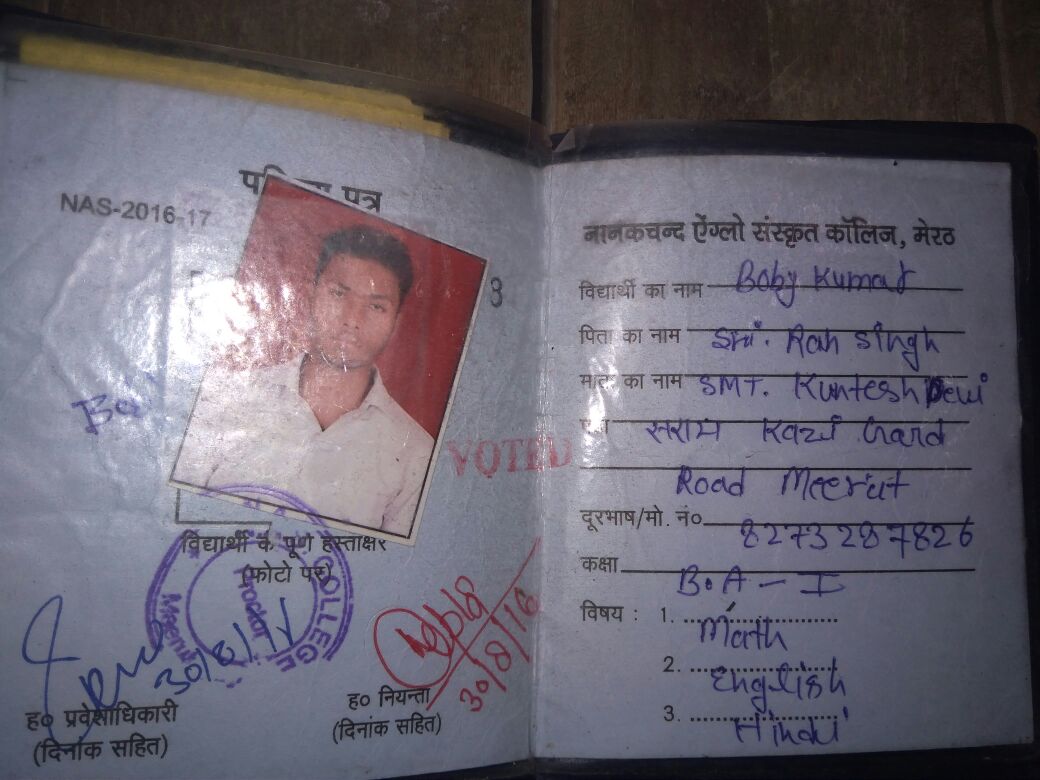 पत्र
NAS-2016-17
3
VOTED
विद्यार्थी के पूर्ण हस्ताक्षर
(फोटो पर)
COLLEGE
Meerut
30/8/16
30/8/16
ह० प्रवेशाधिकारी
(दिनांक सहित)
ह० नियन्ता
(दिनांक सहित)
नानकचन्द ऐंग्लो संस्कृत कॉलिज, मेरठ
विद्यार्थी का नाम Boby Kumar
पिता का नाम Shri. Ran Singh
माता का नाम SMT. Kuntesh Devi
सराय Kazi Gard
Road Meerut
दूरभाष/मो. नं० 8273287826
कक्षा B.A - I
विषय : 1. Math
2. English
3. Hindi